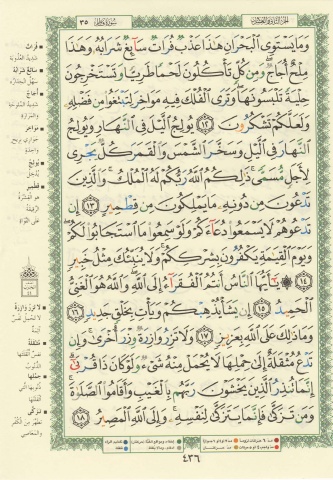 الجزء الثاني والعشرون
سورة فاطر
٣٥
وَمَا يَسْتَوِى ٱلْبَحْرَانِ هَٰذَا عَذْبٌ فُرَاتٌ سَآئِغٌ شَرَابُهُۥ وَهَٰذَا
مِلْحٌ أُجَاجٌ وَمِن كُلٍّ تَأْكُلُونَ لَحْمًا طَرِيًّا وَتَسْتَخْرِجُونَ
حِلْيَةً تَلْبَسُونَهَا وَتَرَى ٱلْفُلْكَ فِيهِ مَوَاخِرَ لِتَبْتَغُوا۟ مِن فَضْلِهِۦ
وَلَعَلَّكُمْ تَشْكُرُونَ ١٢ يُولِجُ ٱلَّيْلَ فِى ٱلنَّهَارِ وَيُولِجُ
ٱلنَّهَارَ فِى ٱلَّيْلِ وَسَخَّرَ ٱلشَّمْسَ وَٱلْقَمَرَ كُلٌّ يَجْرِى
لِأَجَلٍ مُّسَمًّى ذَٰلِكُمُ ٱللَّهُ رَبُّكُمْ لَهُ ٱلْمُلْكُ وَٱلَّذِينَ
تَدْعُونَ مِن دُونِهِۦ مَا يَمْلِكُونَ مِن قِطْمِيرٍ ١٣ إِن
تَدْعُوهُمْ لَا يَسْمَعُوا۟ دُعَآءَكُمْ وَلَوْ سَمِعُوا۟ مَا ٱسْتَجَابُوا۟ لَكُمْ
وَيَوْمَ ٱلْقِيَٰمَةِ يَكْفُرُونَ بِشِرْكِكُمْ وَلَا يُنَبِّئُكَ مِثْلُ خَبِيرٍ
١٤ يَٰٓأَيُّهَا ٱلنَّاسُ أَنتُمُ ٱلْفُقَرَآءُ إِلَى ٱللَّهِ وَٱللَّهُ هُوَ ٱلْغَنِىُّ
ٱلْحَمِيدُ ١٥ إِن يَشَأْ يُذْهِبْكُمْ وَيَأْتِ بِخَلْقٍ جَدِيدٍ ١٦
وَمَا ذَٰلِكَ عَلَى ٱللَّهِ بِعَزِيزٍ ١٧ وَلَا تَزِرُ وَازِرَةٌ وِزْرَ أُخْرَىٰ وَإِن
تَدْعُ مُثْقَلَةٌ إِلَىٰ حِمْلِهَا لَا يُحْمَلْ مِنْهُ شَىْءٌ وَلَوْ كَانَ ذَا قُرْبَىٰٓ
إِنَّمَا تُنذِرُ ٱلَّذِينَ يَخْشَوْنَ رَبَّهُم بِٱلْغَيْبِ وَأَقَامُوا۟ ٱلصَّلَوٰةَ
وَمَن تَزَكَّىٰ فَإِنَّمَا يَتَزَكَّىٰ لِنَفْسِهِۦ وَإِلَى ٱللَّهِ ٱلْمَصِيرُ ١٨
فُرَاتٌ
شديد العذوبة
أُجَاجٌ
شديد الملوحة
والمرارة
مَوَاخِرَ
جواري بريح
واحدة
يُولِجُ
يُدخل
قِطْمِيرٍ
هو القشرة
الرقيقة
على النواة
لَا تَزِرُ وَازِرَةٌ
لا تحمل نفس
آثمة
مُثْقَلَةٌ
نفس أثقلتها
الذنوب
حِمْلِهَا
ذنوبها التي
أثقلتها
تَزَكَّىٰ
تطهر من الكفر
والمعاصي
٤٣٦